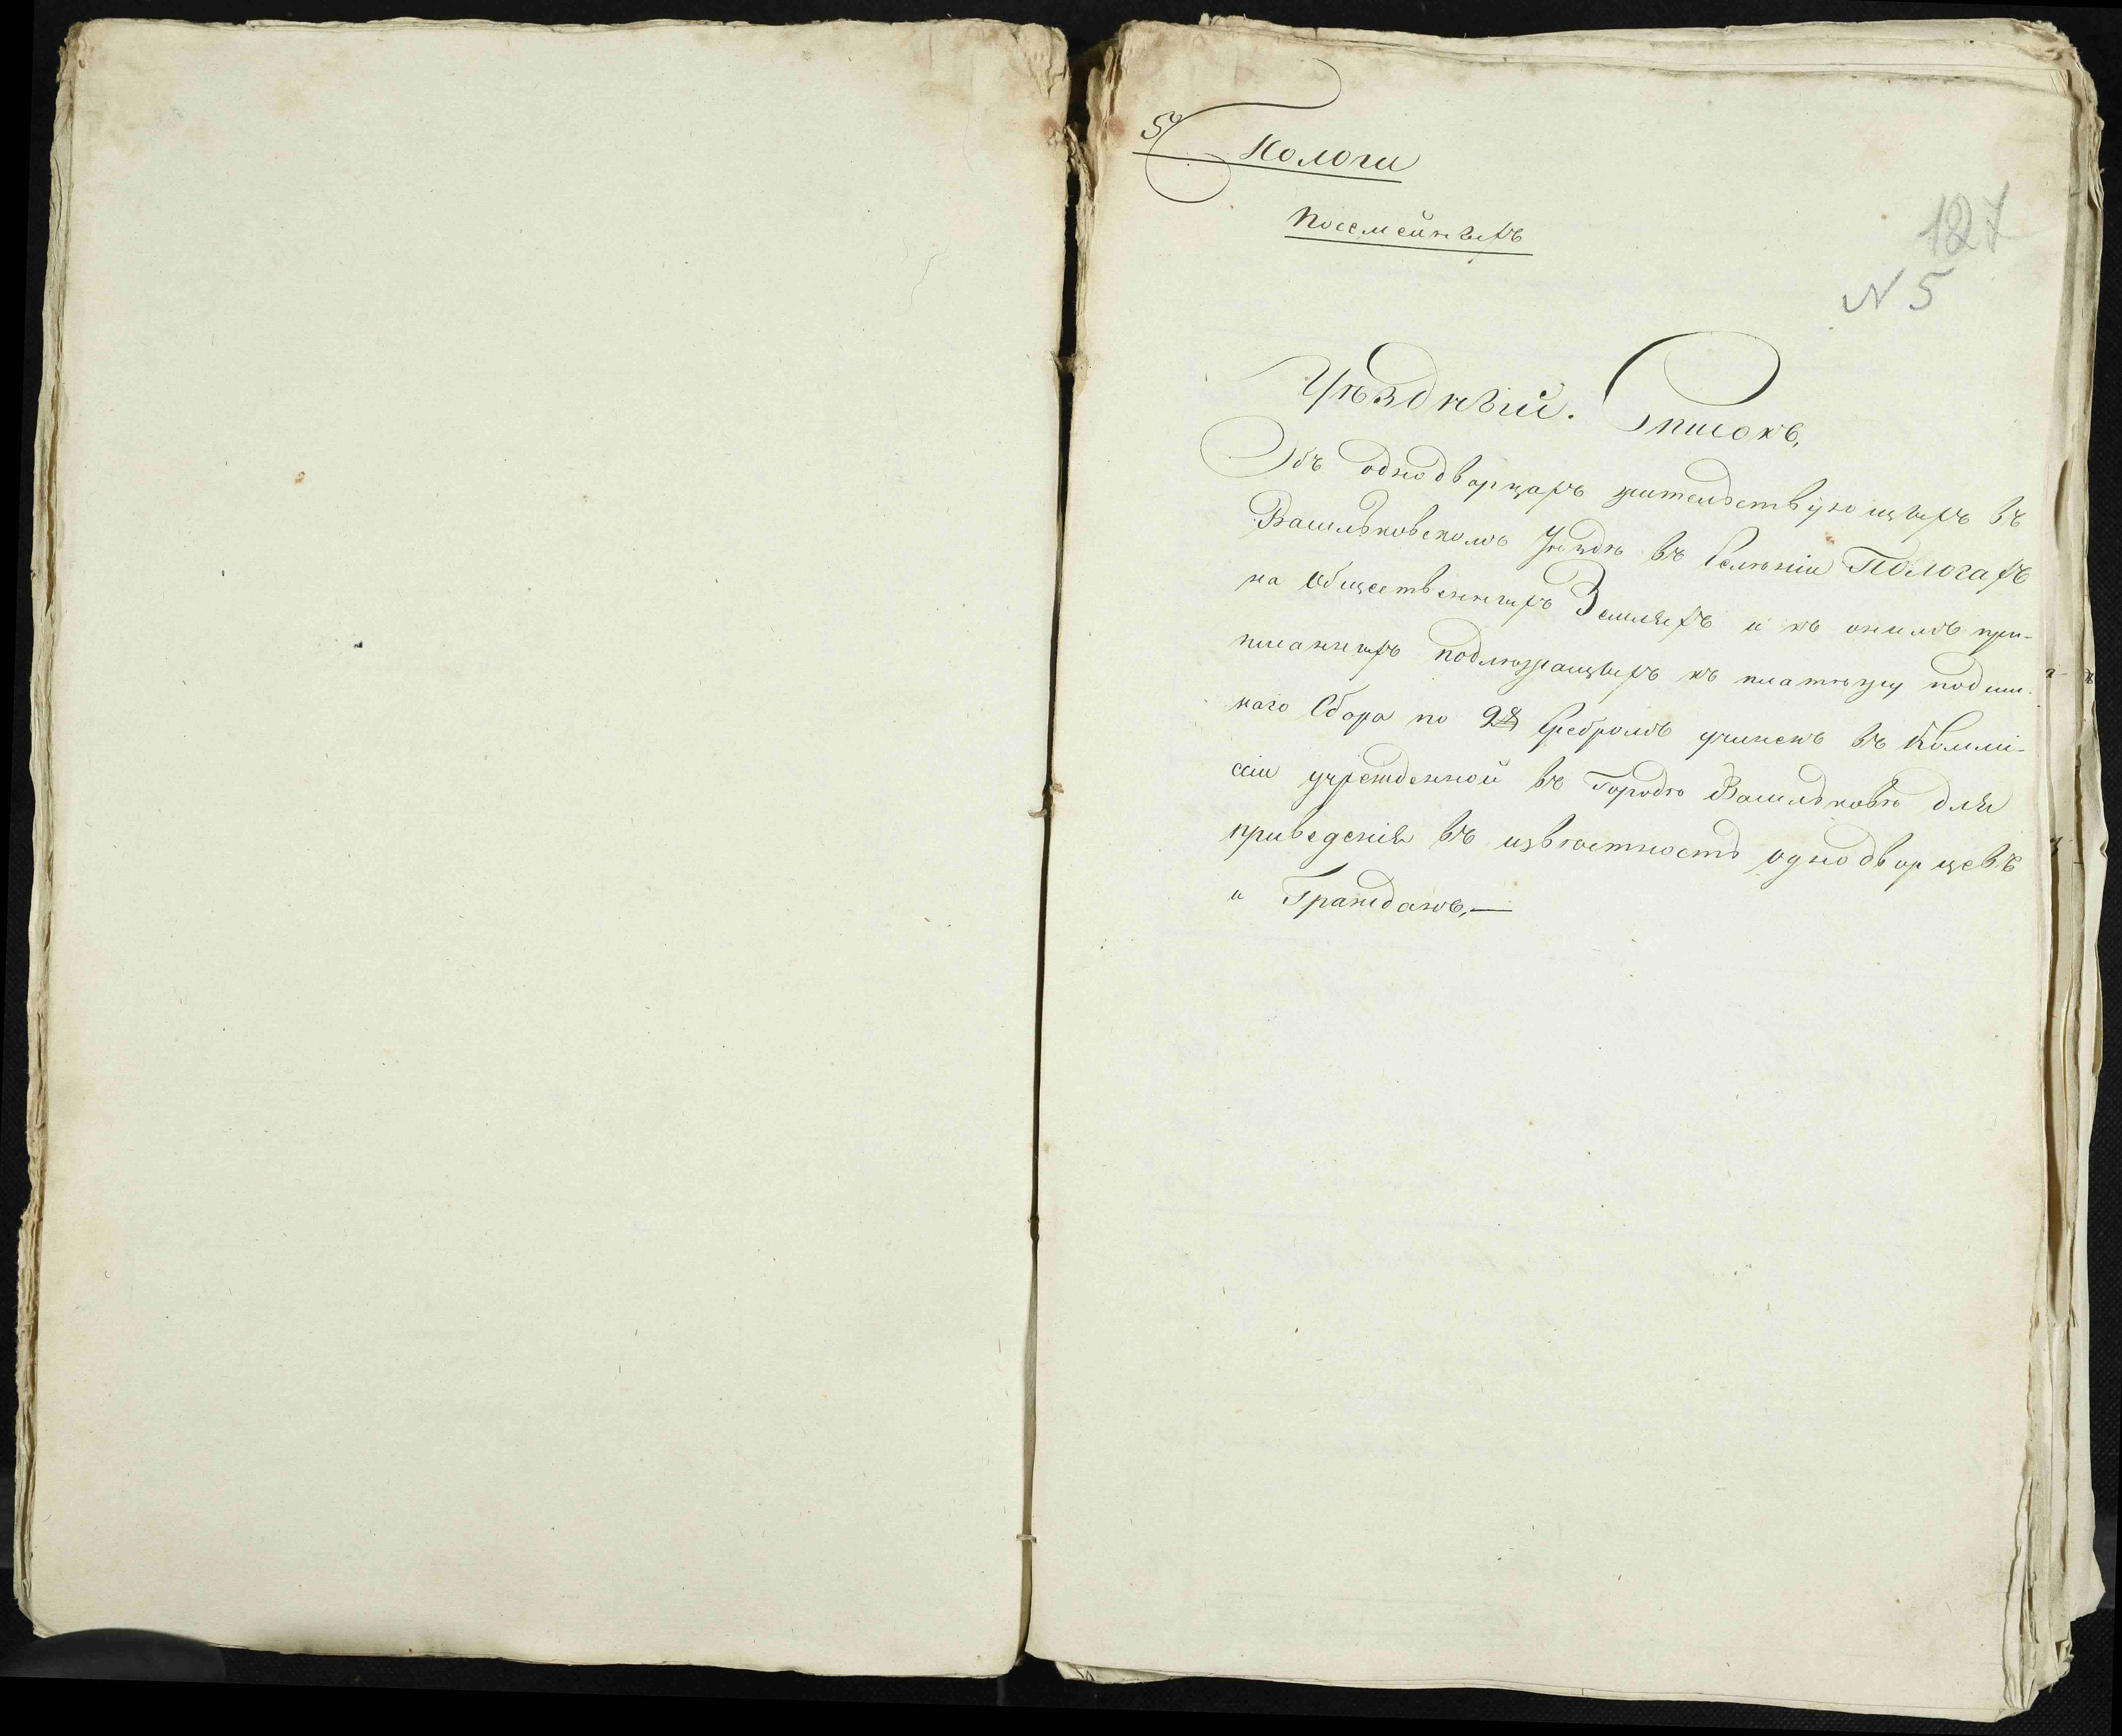 5
Пологи
Посемейныхъ
127
N 5
Уѣздный. Списокъ,
Объ однодворцахъ жительствующихъ въ
Васильковскомъ Уѣздѣ въ Селѣніи Пологахъ
на Общественныхъ Земляхъ и къ онымъ при-
писанныхъ подлѣжащихъ къ платѣжу подым-
наго Сбора по Серебромъ учиненъ въ Коммі-
сіи учрежденной въ Городѣ Васильковѣ для
приведенія въ извѣстность однодворцевъ
и Гражданъ,—